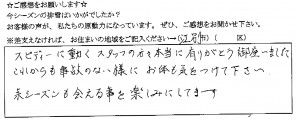 ☆ご感想をお願いします☆
今シーズンの排雪はいかがでしたか？
お客様の声が、私たちの原動力になっています。ぜひ、ご感想をお聞かせ下さい。
※差支えなければ、お住まいの地域をご記入ください→(江別市)(　区)
スピディーに動くスタッフの方々本当に有りがとう御座いました
これからも事故のない様に お体も気をつけて下さい
来シーズンも会える事を楽しみにしてます